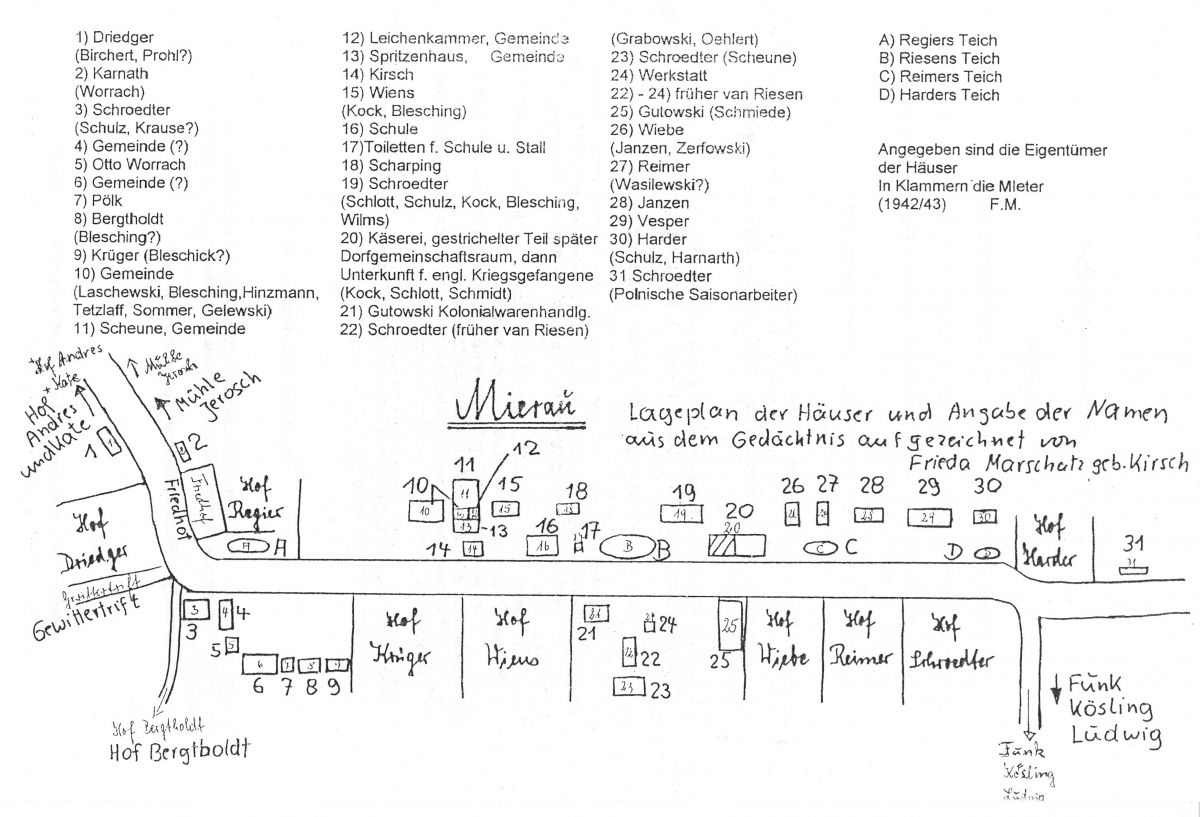 1) Driedger
(Birchert, Prohl?)
2) Karnath
(Worrach)
3) Schroedter
(Schulz, Krause?)
4) Gemeinde (?)
5) Otto Worrach
6) Gemeinde (?)
7) Pölk
8) Bergtholdt
(Blesching?)
9) Krüger (Bleschick?)
10) Gemeinde
(Laschewski, Blesching,Hinzmann,
Tetzlaff, Sommer, Gelewski)
11) Scheune, Gemeinde
12) Leichenkammer, Gemeinde
13) Spritzenhaus, Gemeinde
14) Kirsch
15) Wiens
(Kock, Blesching)
16) Schule
17)Toiletten f. Schule u. Stall
18) Scharping
19) Schroedter
(Schlott, Schulz, Kock, Blesching,
Wilms)
20) Käserei, gestrichelter Teil später
Dorfgemeinschaftsraum, dann
Unterkunft f. engl. Kriegsgefangene
(Kock, Schlott, Schmidt)
21) Gutowski Kolonialwarenhandlg.
22) Schroedter (früher van Riesen)
(Grabowski, Oehlert)
23) Schroedter (Scheune)
24) Werkstatt
22) - 24) früher van Riesen
25) Gutowski (Schmiede)
26) Wiebe
(Janzen, Zerfowski)
27) Reimer
(Wasilewski?)
28) Janzen
29) Vesper
30) Harder
(Schulz, Harnarth)
31 Schroedter
(Polnische Saisonarbeiter)
A) Regiers Teich
B) Riesens Teich
C) Reimers Teich
D) Harders Teich
Angegeben sind die Eigentümer
der Häuser
In Klammern die Mieter
(1942/43) F.M.
Hof Andres
+ Kate
Mühle
Jerosch
Hof
Andres
und Kate
Mühle
Jerosch
Mierau
Lageplan der Häuser und Angabe der Namen
aus dem Gedächtnis aufgezeichnet von
Frieda Marschatz geb. Kirsch
1
2
Friedhof
Friedhof
Hof
Regier
A A
Hof
Driedger
Gewittertrift
Gewittertrift
10 10
11 11
12
13 13
14 14
15 15
16 16
17
18 18
19 19
20 20
B B
26
27
28 28
29 29
30 30
C C
D
Hof
Harder
31 31
3 3
4 4
5 5
6 6
7 7
8 8
9 9
Hof
Krüger
Hof
Wiens
21 21
22 22
23 23
24
25 25
Hof
Wiebe
Hof
Reimer
Hof
Schroedter
Hof Bergtholdt
Hof Bergtboldt
Funk
Kösling
Ludwig
Funk
Kösling
Ludwig